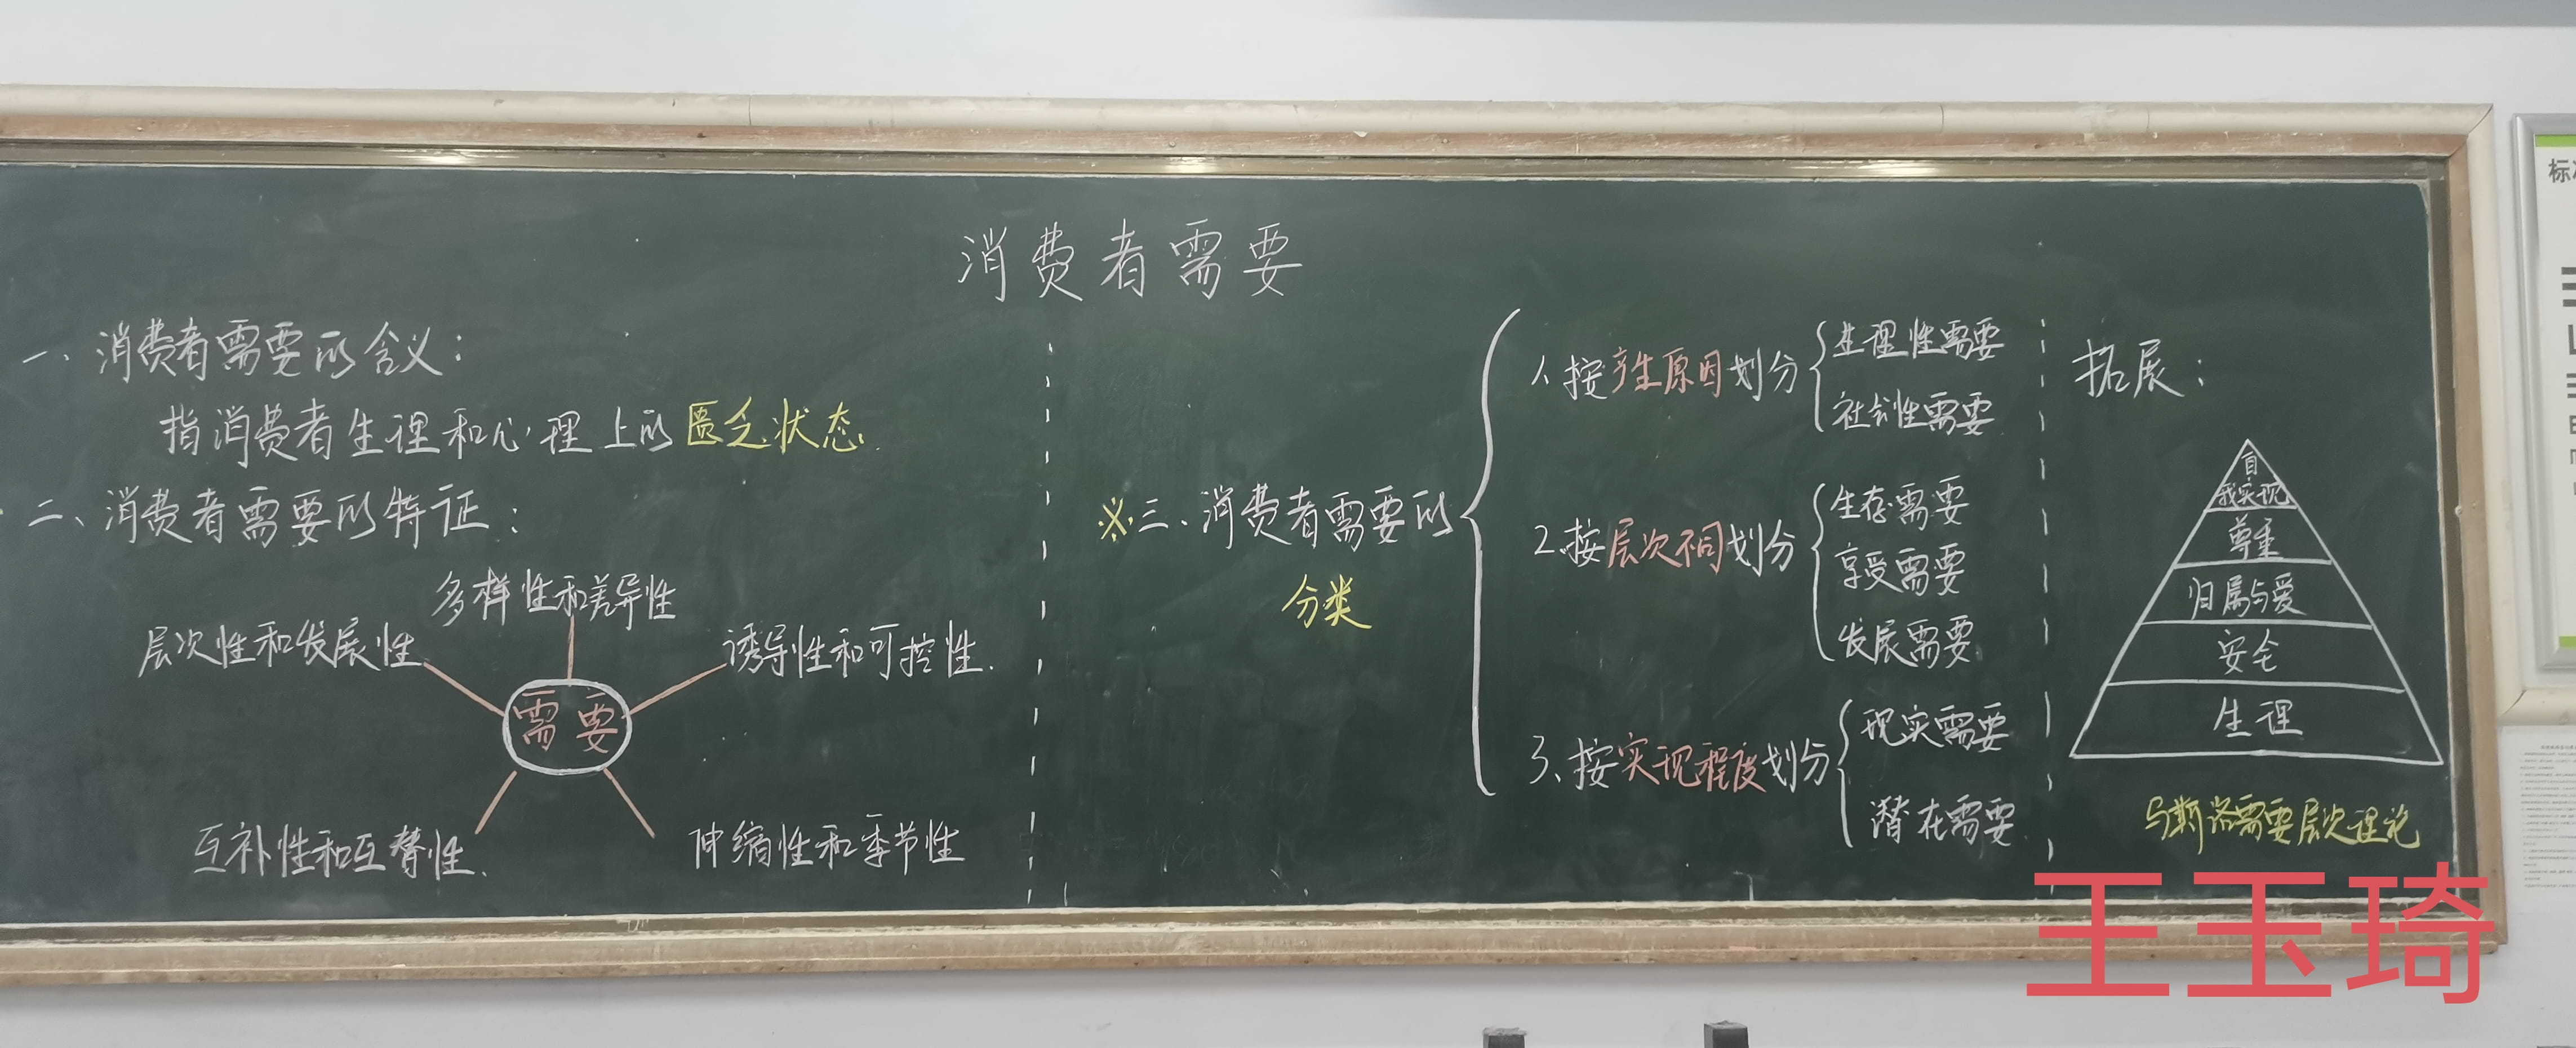 消费者需要
一、消费者需要的含义：
指消费者生理和心理上的匮乏状态.
二、消费者需要的特证：
多样性和差异性
层次性和发展性
诱导性和可控性.
需要
互补性和互替性.
伸缩性和季节性
※三、消费者需要的
分类
1、按产生原因划分
生理性需要
社会性需要
2、按层次不同划分
生存需要
享受需要
发展需要
3、按实现程度划分
现实需要
潜在需要
拓展：
自
我实现
尊重
归属与爱
安全
生理
马斯洛需要层次理论
王玉琦
标